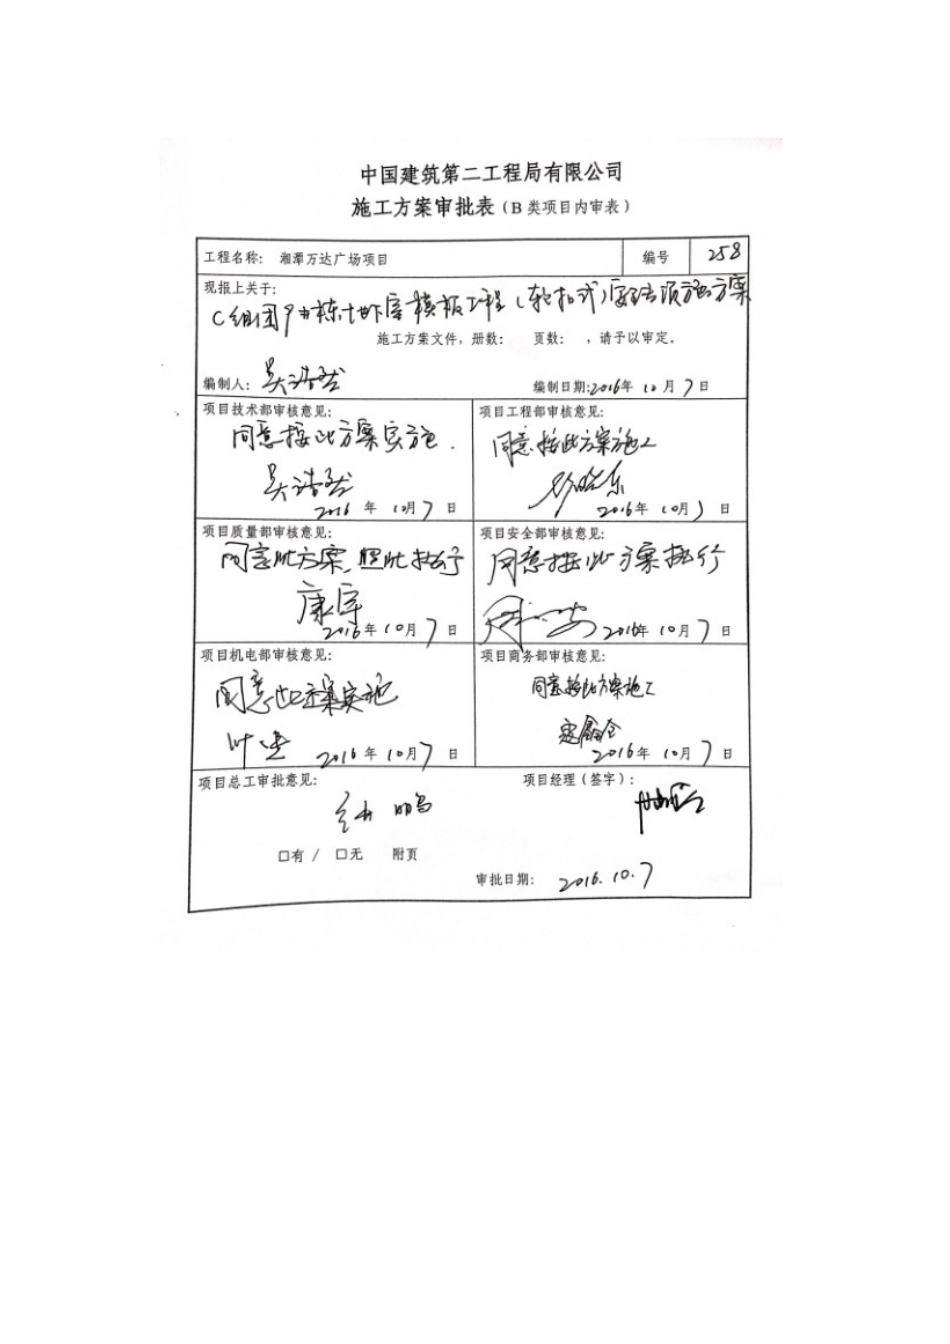 中国建筑第二工程局有限公司
施工方案审批表（B 类项目内审表）
工程名称： 湘潭万达广场项目 编号 258
现报上关于：
C组团 栋地下室模板工程（轮扣式）安全专项施工方案
施工方案文件，册数： 页数： ，请予以审定。
编制人：吴浩 编制日期:2016年 10 月 7 日
项目技术部审核意见：
同意按此方案实施．
吴浩
2016 年 10月 7 日
项目工程部审核意见：
同意按此方案施工
东
2016年 10月 日
项目质量部审核意见：
同意此方案，照此执行
康军
2016年 10月 7 日
项目安全部审核意见：
同意按此方案执行
周
2016年 10月 7 日
项目机电部审核意见：
同意此方案实施
叶
2016年 10月 7 日
项目商务部审核意见：
同意按此方案施工
2016年 10月 7 日
项目总工审批意见： 项目经理（签字）：
鹏
□有 / □无 附页
审批日期： 2016.10.7